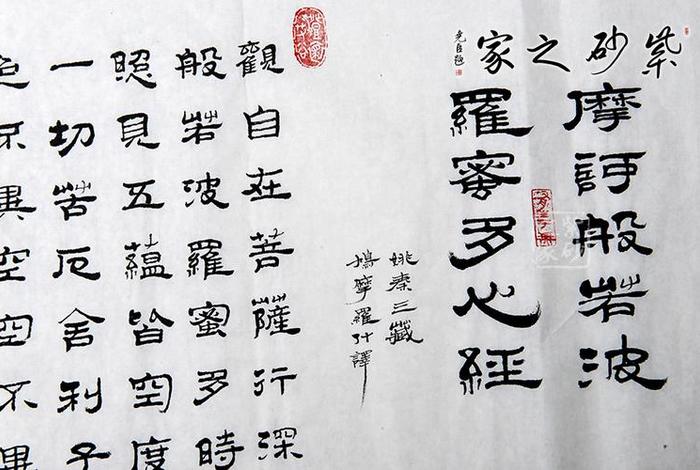 紫砂之家
摩訶般若波
羅蜜多心經
姚秦三藏
鳩摩羅什譯
觀自在菩薩行深
般若波羅蜜多時
照見五蘊皆空度
一切苦厄舍利子
色不異空空不異